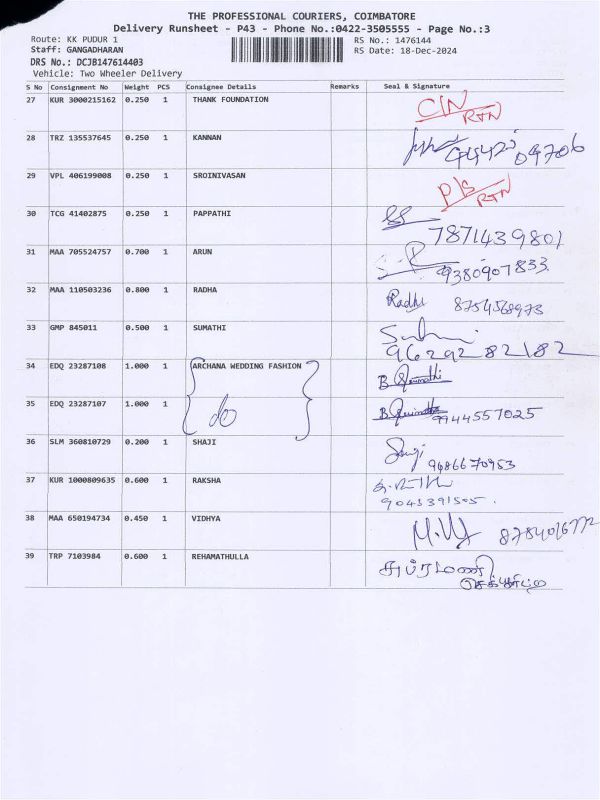 THE PROFESSIONAL COURIERS, COIMBATORE
Delivery Runsheet - P43 - Phone No.:0422-3505555 - Page No.:3
Route: KK PUDUR 1 RS No.: 1476144
Staff: GANGADHARAN RS Date: 18-Dec-2024
DRS No.: DCJB147614403
Vehicle: Two Wheeler Delivery
S No Consignment No Weight PCS Consignee Details Remarks Seal & Signature
27 KUR 3000215162 0.250 1 THANK FOUNDATION C/N RTN
28 TRZ 135537645 0.250 1 KANNAN
29 VPL 406199008 0.250 1 SROINIVASAN P/S RTN
30 TCG 41402875 0.250 1 PAPPATHI 7871439801
31 MAA 705524757 0.700 1 ARUN 9380907833
32 MAA 110503236 0.800 1 RADHA Radhi
33 GMP 845011 0.500 1 SUMATHI 9629282182
34 EDQ 23287108 1.000 1 ARCHANA WEDDING FASHION
35 EDQ 23287107 1.000 1 do 9944557025
36 SLM 360810729 0.200 1 SHAJI 9486670953
37 KUR 1000809635 0.600 1 RAKSHA
38 MAA 650194734 0.450 1 VIDHYA
39 TRP 7103984 0.600 1 REHAMATHULLA சுப்ரமணி